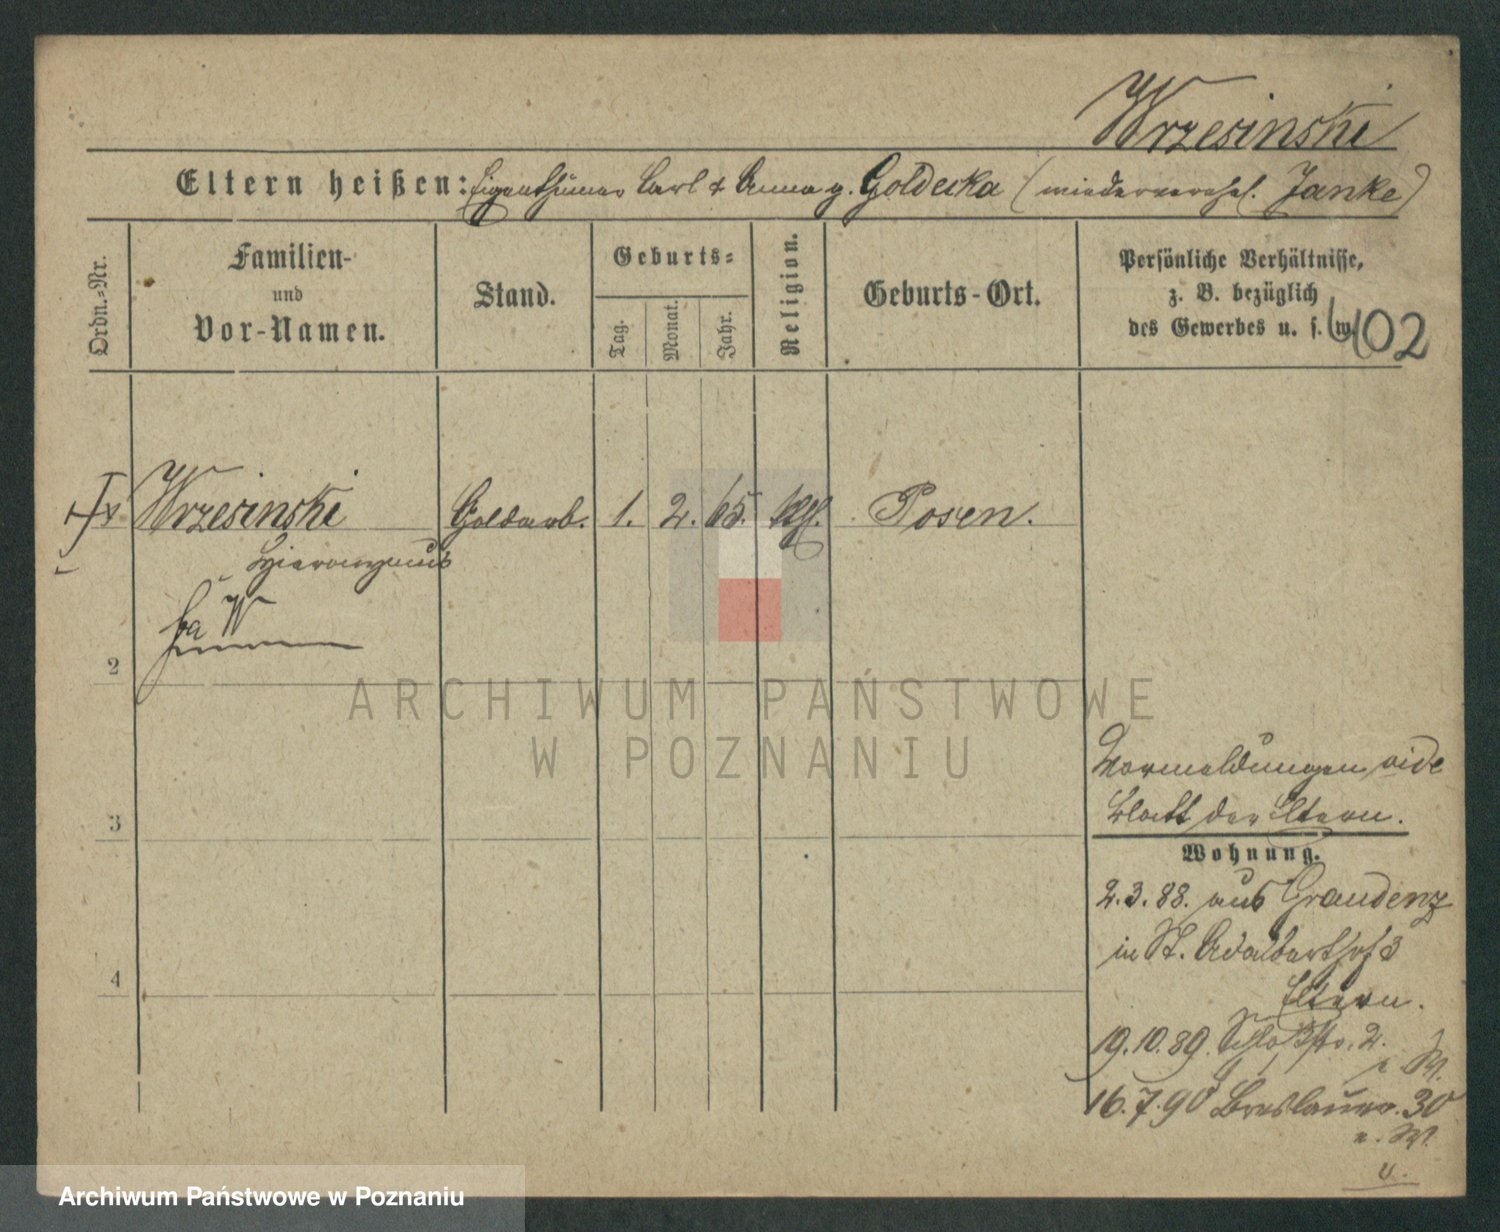 Wrzesinski
Eltern heißen: Eigenthümer Carl & Anna g. Goldecka (wiederverehel. Janke)
Ordn.-Nr.
Familien-
und
Vor-Namen.
Stand.
Geburts-
Tag.
Monat.
Jahr.
Religion.
Geburts-Ort.
Persönliche Verhältnisse,
z. B. bezüglich
des Gewerbes u. s. w.
402
Wrzesinski Goldarb. 1. 2. 65. kth. Posen.
Hieronymus
2
3
4
Vormeldungen vide
Blatt der Eltern.
Wohnung.
2.3.88. aus Graudenz
in St. Adalberthof 3
Eltern.
19.10.89. Schloßstr. 2.
16.7.90 Breslauer. 30
ARCHIWUM PAŃSTWOWE
W POZNANIU
Archiwum Państwowe w Poznaniu